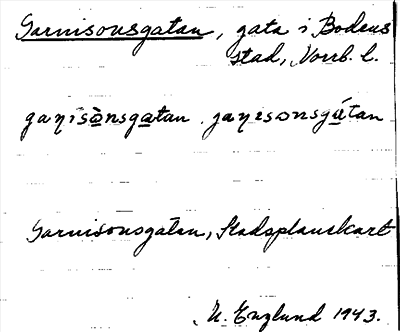 Garnisonsgatan, gata i Bodens
stad, Norrb. l.
gaṇisònsgatan. 
Garnisonsgatan, Stadsplanekart
N. Englund 1943.